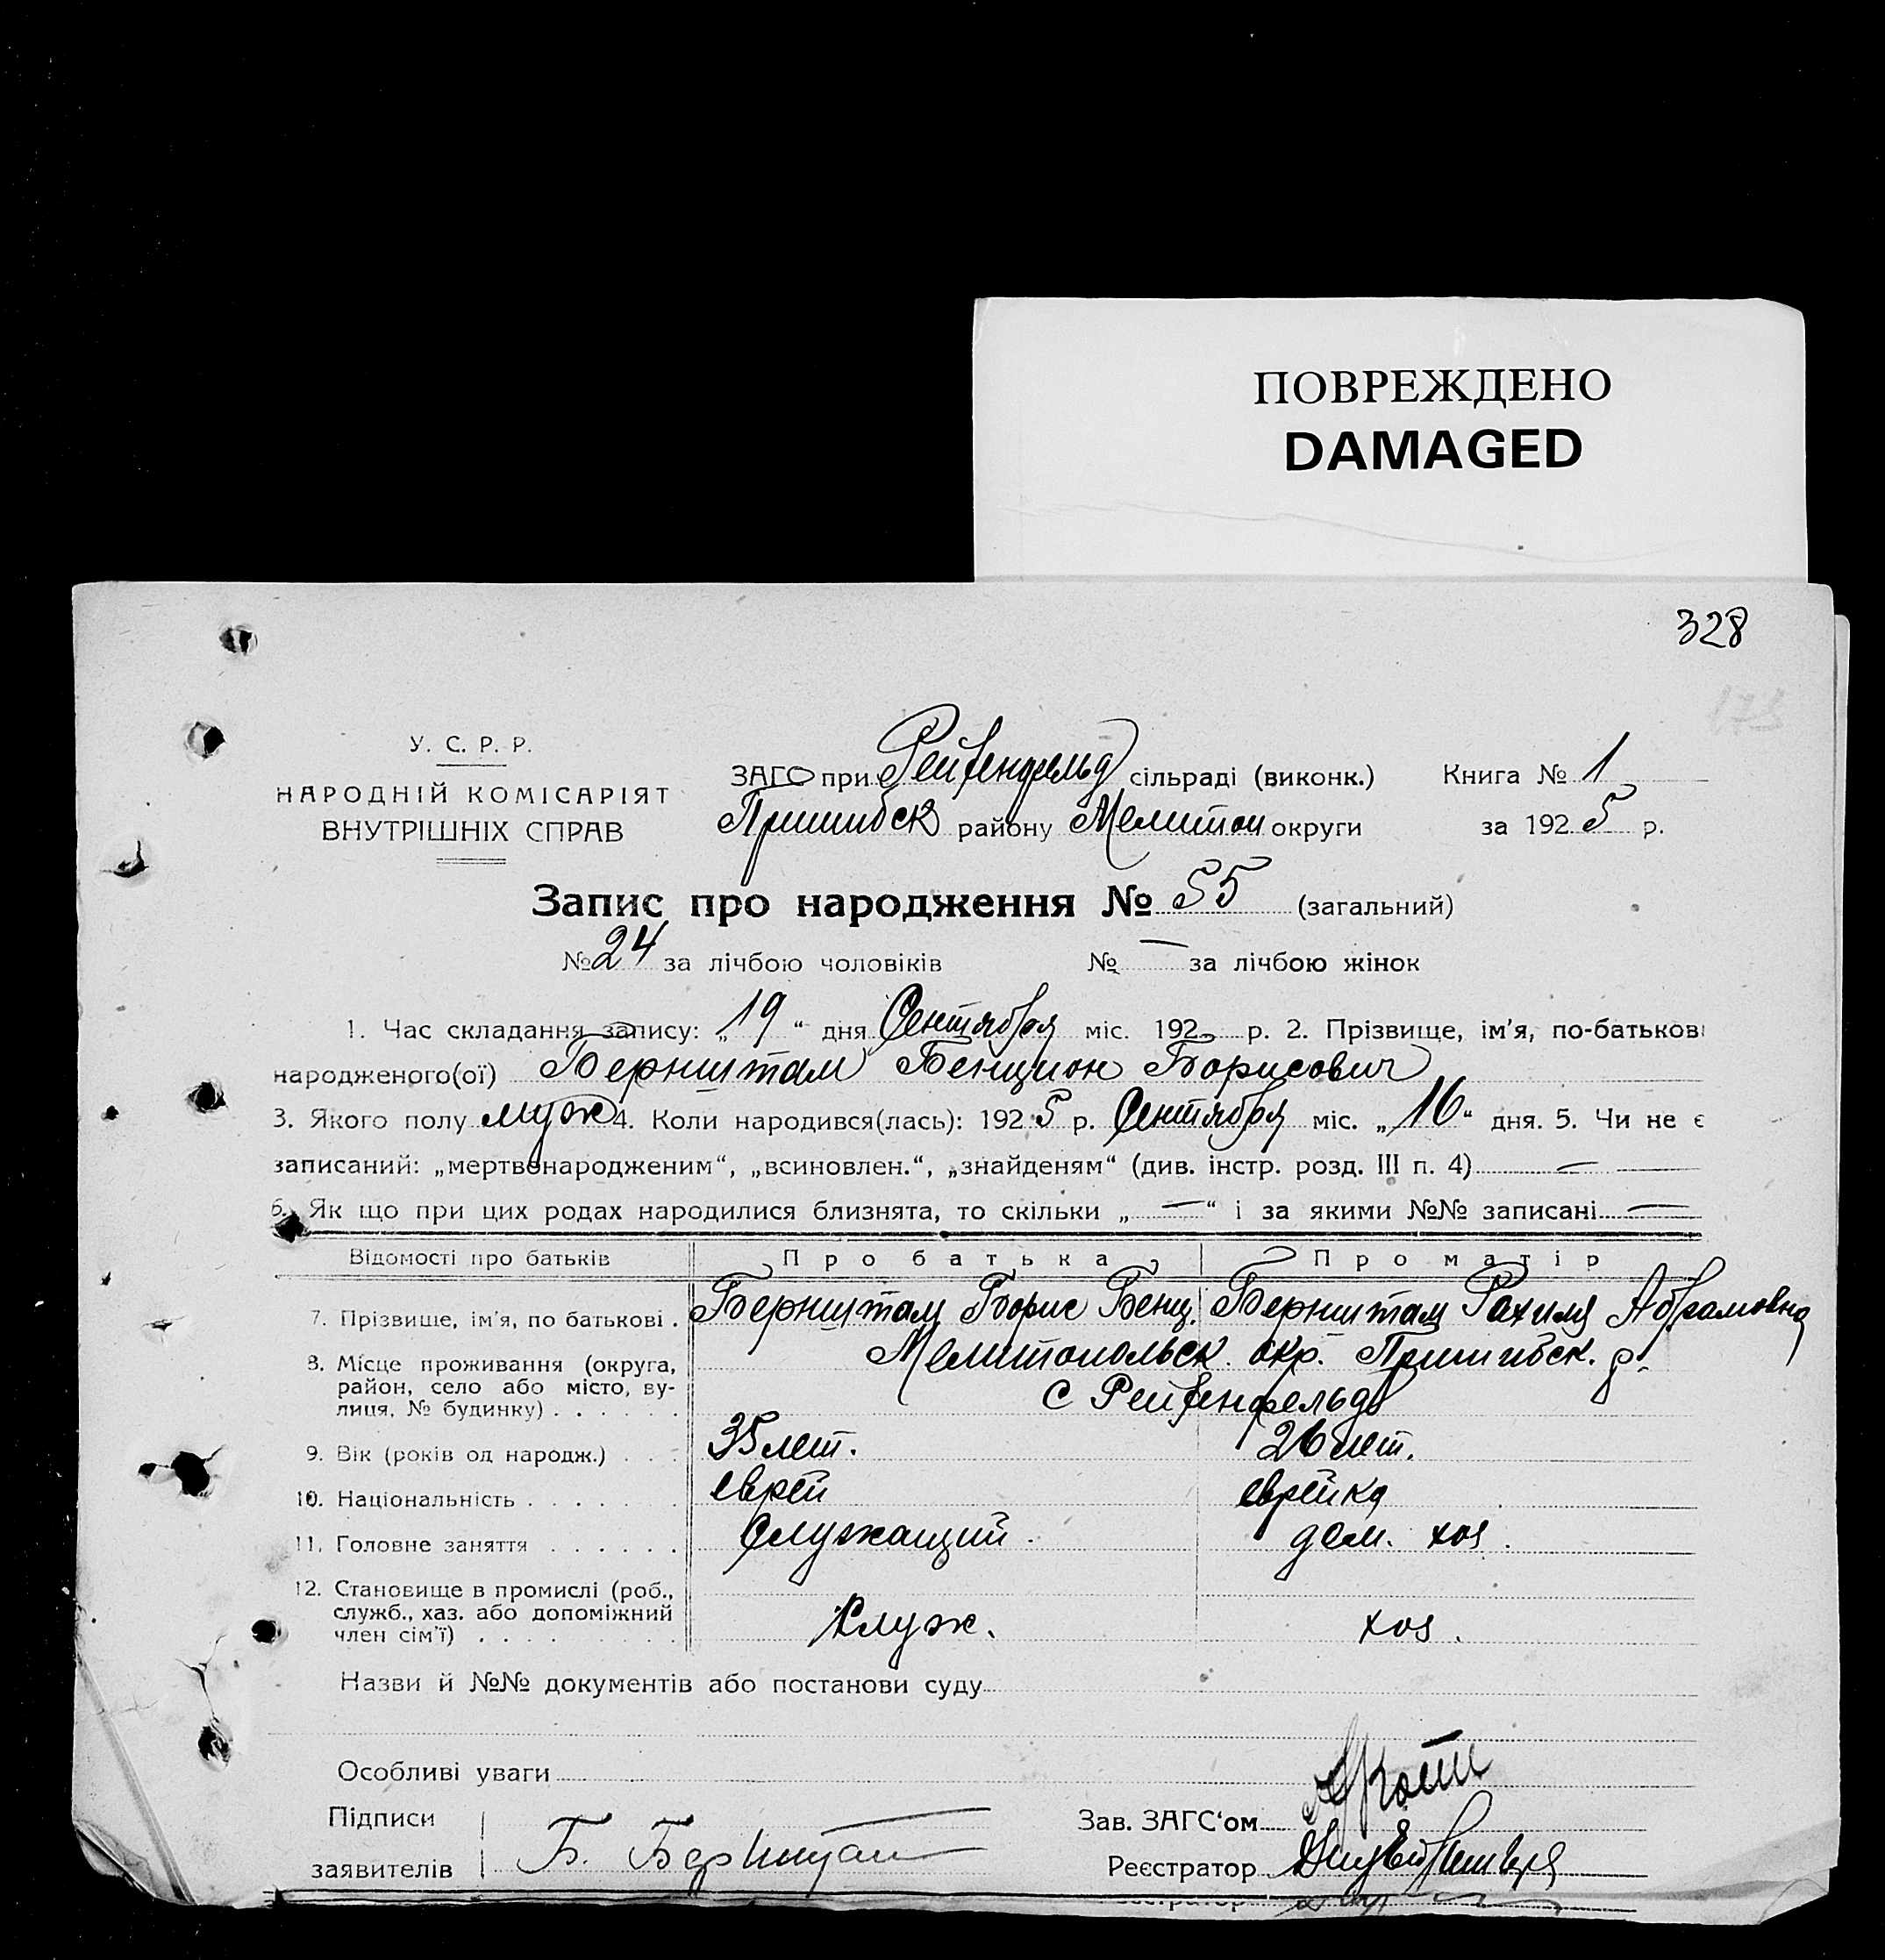 ПОВРЕЖДЕНО
DAMAGED
328
173
У. С. Р. Р.
НАРОДНІЙ КОМІСАРІЯТ
ВНУТРІШНІХ СПРАВ
ЗАГС при Рейхенфельд сільраді (виконк.) Книга № 1
Пришибск району Мелитоп округи за 1925 р.
Запис про народження № 55 (загальний)
№ 24 за лічбою чоловіків № — за лічбою жінок
1. Час складання запису: „19“ дня Сентября міс. 192 р. 2. Прізвище, ім’я, по-батькові
народженого(ої) Бернштам Бенцион Борисович
3. Якого полу муж 4. Коли народився(лась): 1925 р. Сентября міс. „16“ дня. 5. Чи не є
записаний: „мертвонародженим“, „всиновлен.“, „знайденям“ (див. інстр. розд. III п. 4) —
6. Як що при цих родах народилися близнята, то скільки „—“ і за якими №№ записані —
Відомості про батьків Про батька Про матір
7. Прізвише, ім’я, по батькові . Бернштам Борис Бенц. Бернштам Рахиля Абрамовна
8. Місце проживання (округа, Мелитопольск. окр. Пришибск. р.
район, село або місто, ву-
лиця, № будинку) . . . . . . с Рейхенфельд
9. Вік (років од народж.) . . . 35 лет. 26 лет.
10. Національність . . . . . . . еврей еврейка
11. Головне заняття . . . . . . Служащий. дом. хоз.
12. Становище в промислі (роб.,
служб., хаз. або допоміжний
член сім’ї) . . . . . . . . . Служ. хоз.
Назви й №№ документів або постанови суду
Особливі уваги
Підписи
Зав. ЗАГС‘ом
заявителів Б. Бернштам
Реєстратор